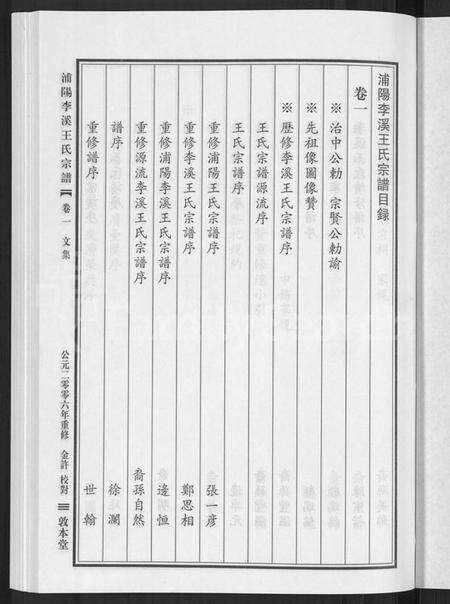 浦陽李溪王氏宗譜目錄
卷一
※ 治中公勅 宗賢公勅諭
※ 先祖像圖像贊
※ 歷修李溪王氏宗譜序
王氏宗譜源流序
王氏宗譜序
重修浦陽王氏宗譜序 張一彦
重修李溪王氏宗譜序 鄭思相
重修浦陽李溪王氏宗譜序 邊恒
重修源流李溪王氏宗譜序 裔孫自然
譜序 徐瀾
重修譜序 世翰
浦陽李溪王氏宗譜 卷一 文集 公元二零零六年重修 金許校對 敦本堂